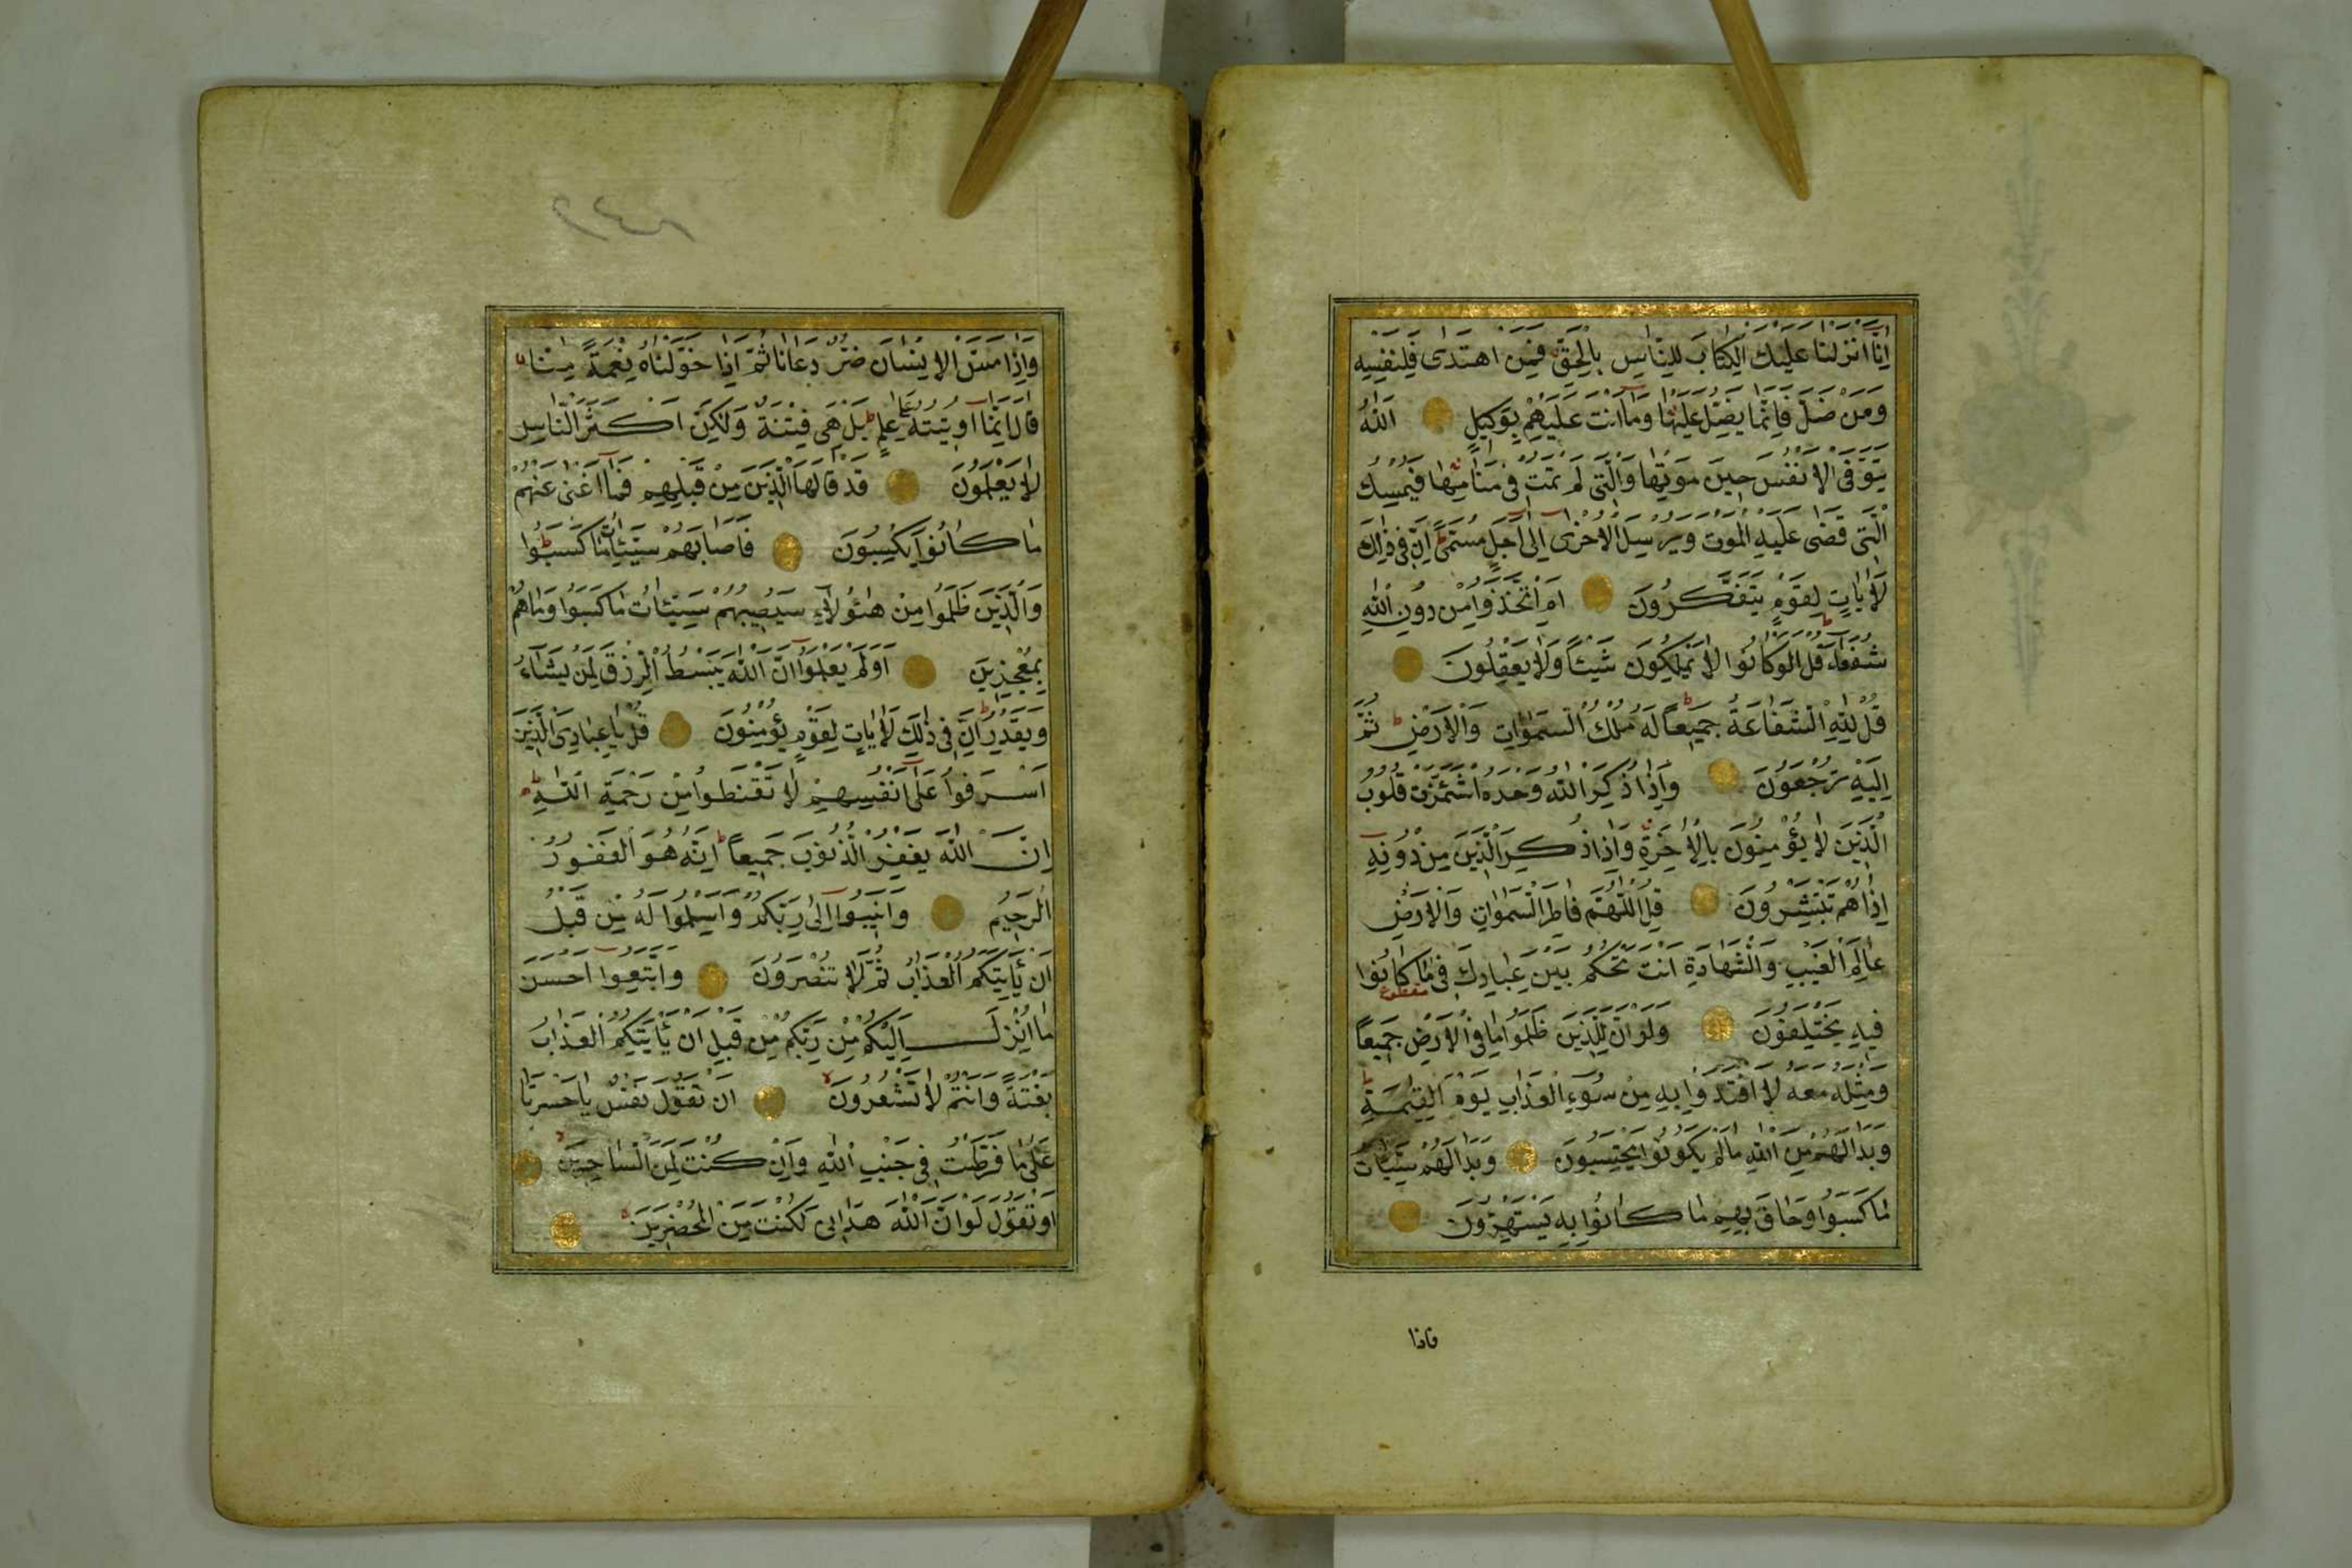 اِنَّا اَنْزَلْنَا عَلَيْكَ الْكِتَابَ لِلنَّاسِ بِالْحَقِّ فَمَنِ اهْتَدٰى فَلِنَفْسِهِ
وَمَنْ ضَلَّ فَاِنَّمَا يَضِلُّ عَلَيْهَا وَمَا اَنْتَ عَلَيْهِمْ بِوَكِيلٍ اَللّٰهُ
يَتَوَفَّى الْاَنْفُسَ حِينَ مَوْتِهَا وَالَّتِى لَمْ تَمُتْ فِى مَنَامِهَا فَيُمْسِكُ
الَّتِى قَضٰى عَلَيْهِ الْمَوْتَ وَيُرْسِلُ الْاُخْرٰى اِلٰى اَجَلٍ مُسَمًّى ط اِنَّ فِى ذٰلِكَ
لَاٰيَاتٍ لِقَوْمٍ يَتَفَكَّرُونَ اَمِ اتَّخَذُوا مِنْ دُونِ اللّٰهِ
شُفَعَاءَ ط قُلْ اَوَلَوْ كَانُوا لَا يَمْلِكُونَ شَيْئًا وَلَا يَعْقِلُونَ
قُلْ لِلّٰهِ الشَّفَاعَةُ جَمِيعًا ط لَهُ مُلْكُ السَّمٰوَاتِ وَالْاَرْضِ ط ثُمَّ
اِلَيْهِ تُرْجَعُونَ وَاِذَا ذُكِرَ اللّٰهُ وَحْدَهُ اشْمَئَزَّتْ قُلُوبُ
الَّذِينَ لَا يُؤْمِنُونَ بِالْاٰخِرَةِ وَاِذَا ذُكِرَ الَّذِينَ مِنْ دُونِهِ
اِذَا هُمْ يَسْتَبْشِرُونَ قُلِ اللّٰهُمَّ فَاطِرَ السَّمٰوَاتِ وَالْاَرْضِ
عَالِمَ الْغَيْبِ وَالشَّهَادَةِ اَنْتَ تَحْكُمُ بَيْنَ عِبَادِكَ فِى مَا كَانُوا
مقطوع
فِيهِ يَخْتَلِفُونَ وَلَوْ اَنَّ لِلَّذِينَ ظَلَمُوا مَا فِى الْاَرْضِ جَمِيعًا
وَمِثْلَهُ مَعَهُ لَافْتَدَوْا بِهِ مِنْ سُوءِ الْعَذَابِ يَوْمَ الْقِيٰمَةِ ط
وَبَدَا لَهُمْ مِنَ اللّٰهِ مَا لَمْ يَكُونُوا يَحْتَسِبُونَ وَبَدَا لَهُمْ سَيِّئَاتُ
مَا كَسَبُوا وَحَاقَ بِهِمْ مَا كَانُوا بِهِ يَسْتَهْزِؤُنَ
فاذا
٢٤٨
وَاِذَا مَسَّ الْاِنْسَانَ ضُرٌّ دَعَانَا ثُمَّ اِذَا خَوَّلْنَاهُ نِعْمَةً مِنَّا
قَالَ اِنَّمَا اُوتِيتُهُ عَلٰى عِلْمٍ ط بَلْ هِىَ فِتْنَةٌ وَلٰكِنَّ اَكْثَرَ النَّاسِ
لَا يَعْلَمُونَ قَدْ قَالَهَا الَّذِينَ مِنْ قَبْلِهِمْ فَمَا اَغْنٰى عَنْهُمْ
مَا كَانُوا يَكْسِبُونَ فَاَصَابَهُمْ سَيِّئَاتُ مَا كَسَبُوا ط
وَالَّذِينَ ظَلَمُوا مِنْ هٰؤُلَاءِ سَيُصِيبُهُمْ سَيِّئَاتُ مَا كَسَبُوا وَمَا هُمْ
بِمُعْجِزِينَ اَوَلَمْ يَعْلَمُوا اَنَّ اللّٰهَ يَبْسُطُ الرِّزْقَ لِمَنْ يَشَاءُ
وَيَقْدِرُ ط اِنَّ فِى ذٰلِكَ لَاٰيَاتٍ لِقَوْمٍ يُؤْمِنُونَ قُلْ يَا عِبَادِىَ الَّذِينَ
اَسْرَفُوا عَلٰى اَنْفُسِهِمْ لَا تَقْنَطُوا مِنْ رَحْمَةِ اللّٰهِ ط
اِنَّ اللّٰهَ يَغْفِرُ الذُّنُوبَ جَمِيعًا ط اِنَّهُ هُوَ الْغَفُورُ
الرَّحِيمُ وَاَنِيبُوا اِلٰى رَبِّكُمْ وَاَسْلِمُوا لَهُ مِنْ قَبْلِ
اَنْ يَأْتِيَكُمُ الْعَذَابُ ثُمَّ لَا تُنْصَرُونَ وَاتَّبِعُوا اَحْسَنَ
مَا اُنْزِلَ اِلَيْكُمْ مِنْ رَبِّكُمْ مِنْ قَبْلِ اَنْ يَأْتِيَكُمُ الْعَذَابُ
بَغْتَةً وَاَنْتُمْ لَا تَشْعُرُونَ لا اَنْ تَقُولَ نَفْسٌ يَا حَسْرَتَا
عَلٰى مَا فَرَّطْتُ فِى جَنْبِ اللّٰهِ وَاِنْ كُنْتُ لَمِنَ السَّاخِرِينَ
اَوْ تَقُولَ لَوْ اَنَّ اللّٰهَ هَدَانِى لَكُنْتُ مِنَ الْمُحْضَرِينَ